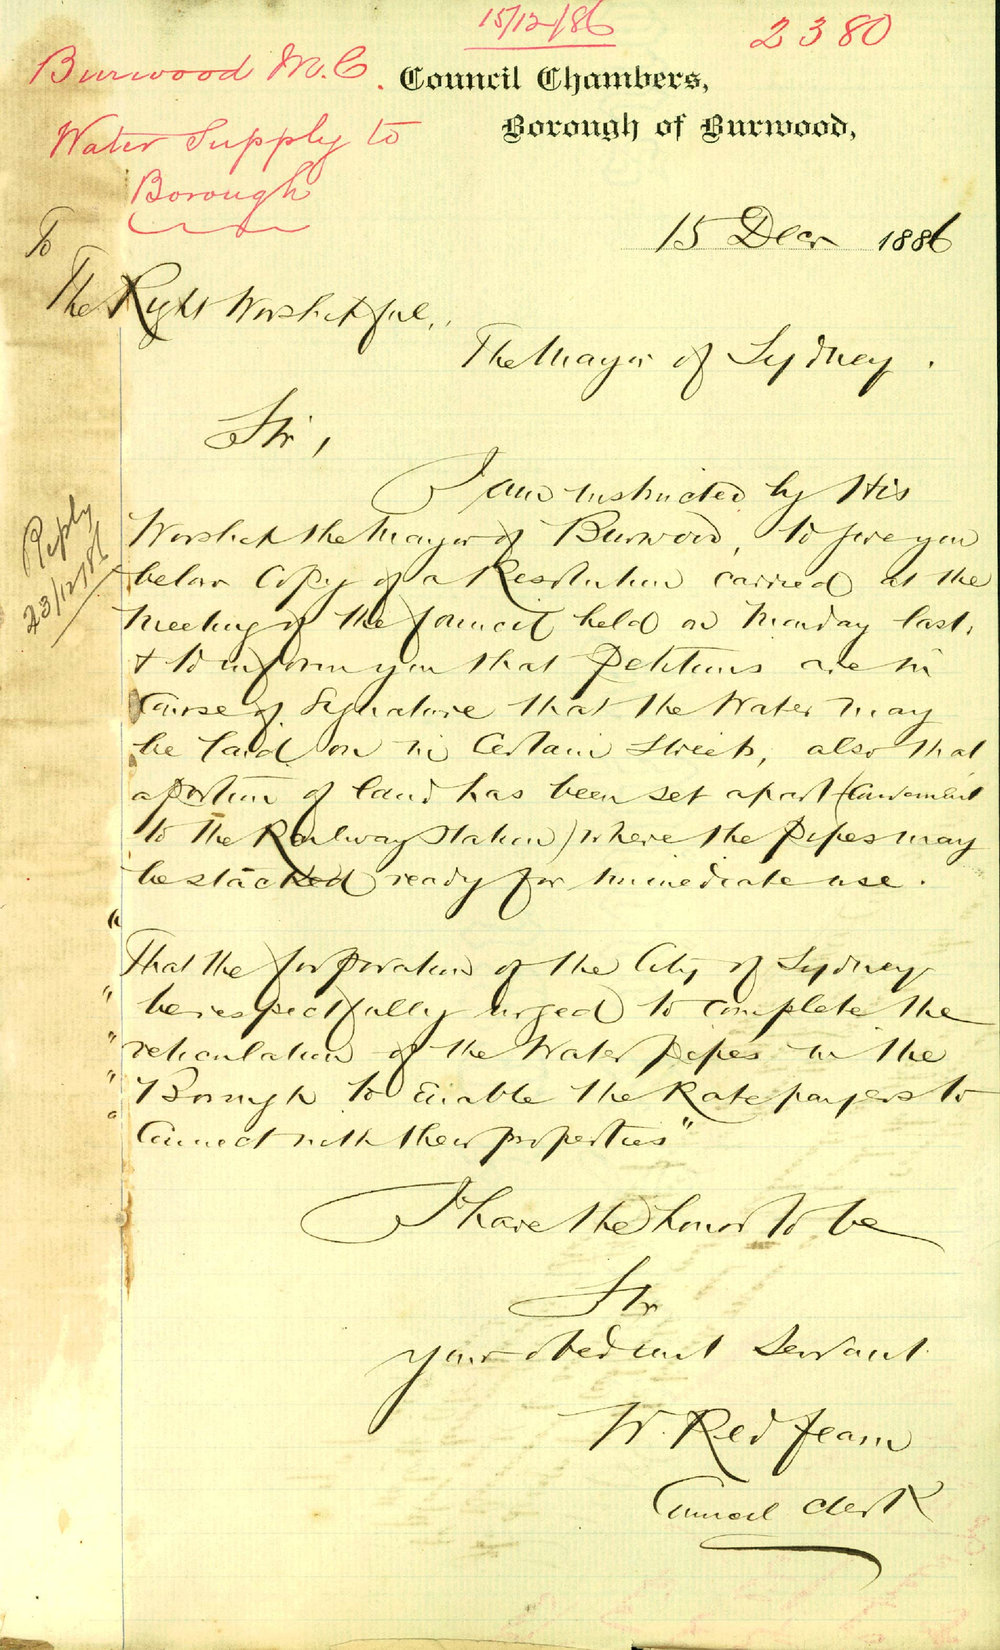 15/12/86
2380
Burwood M.C.
Water Supply to
Borough
Council Chambers,
Borough of Burwood,
15 Decr 1886
To
The Right Worshipful,
The Mayor of Sydney.
Sir,
I am instructed by His
Worship the Mayor of Burwood, to give you
below Copy of a Resolution carried at the
Meeting of the Council held on Monday last,
& to inform you that Petitions are in
Course of Signature that the Water may
be laid on in Certain Streets, also that
a portion of land has been set apart (Convenient
to the Railway Station) where the pipes may
be stacked ready for immediate use.
Reply
23/12/86
"
That the Corporation of the City of Sydney
" be respectfully urged to complete the
" reticulation of the Water pipes in the
" Borough to Enable the Ratepayers to
" Connect with their properties"
I have the honor to be
Sir
your obedient Servant
W. Redfearn
Council Clerk